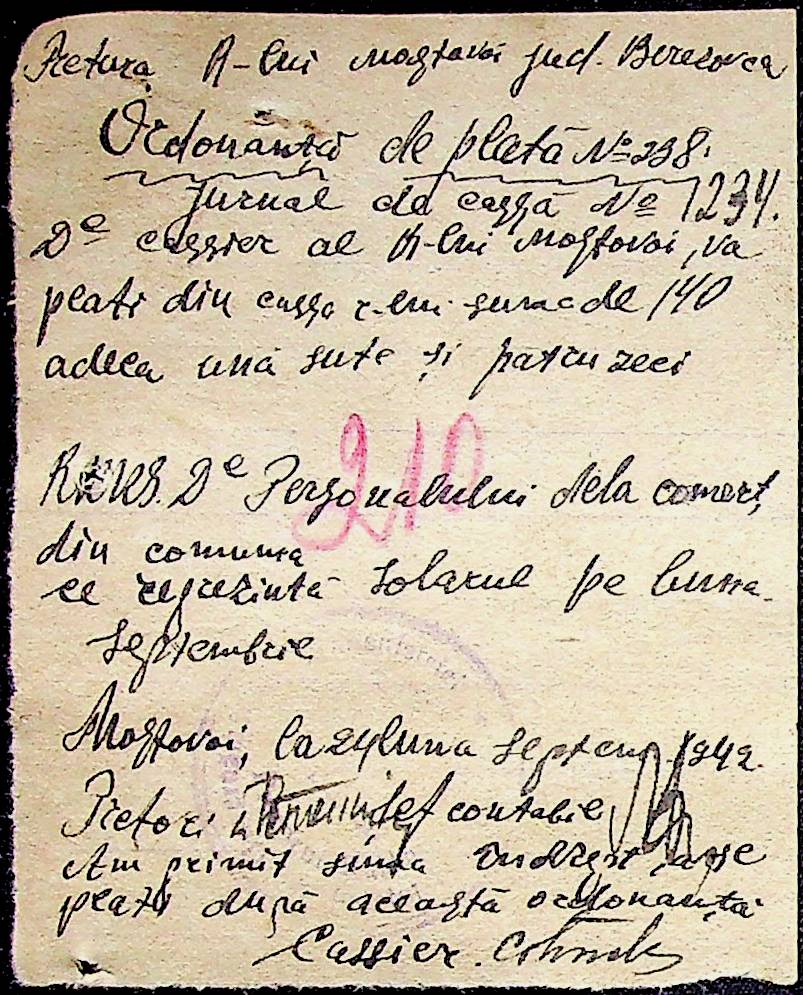 Pretura R-lui Mostovoi jud. Berezovca
Ordonanță de plată № 238.
Jurnal de cassă № 1234.
Dl cassier al R-lui Mostovoi, va
plati din cassa r-lui suma de 140
adeca una sute și patru zeci
Personalului dela comerț,
din comuna
ce reprezintă solarul pe luna
Septembrie
Mostovoi, la 24 luna Septem 1942.
Pretor contabil
Am primit suma
plati după această ordonanță
Cassier.
210